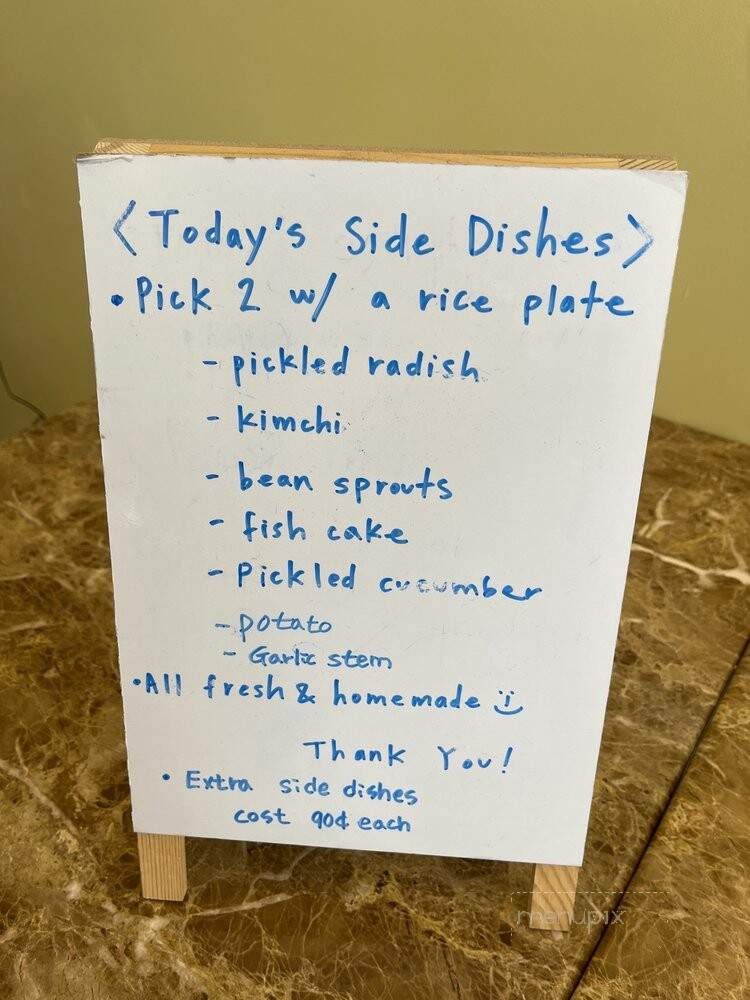 <Today's Side Dishes>
• Pick 2 w/ a rice plate
- pickled radish
- kimchi
- bean sprouts
- fish cake
- Pickled cucumber
- potato
- Garlic stem
• All fresh & homemade
Thank You!
• Extra side dishes
cost 90¢ each
menupix